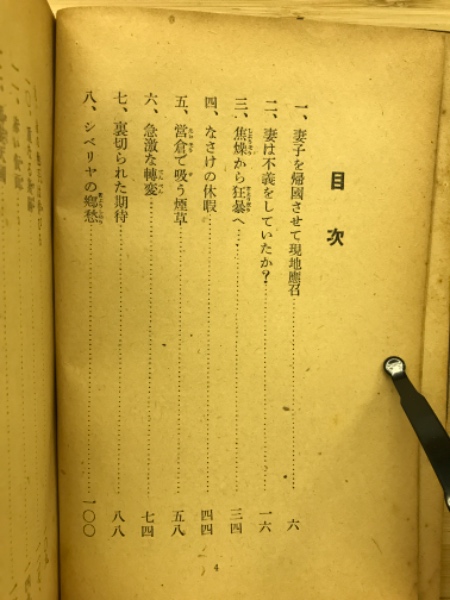 目次
一、妻子を帰國させて現地應召……六
二、妻は不義をしていたか？……一六
三、焦燥から狂暴へ……三四
四、なさけの休暇……四四
五、營倉で吸う煙草……五八
六、急激な轉変……七四
七、裏切られた期待……八八
八、シベリヤの郷愁……一〇〇
4